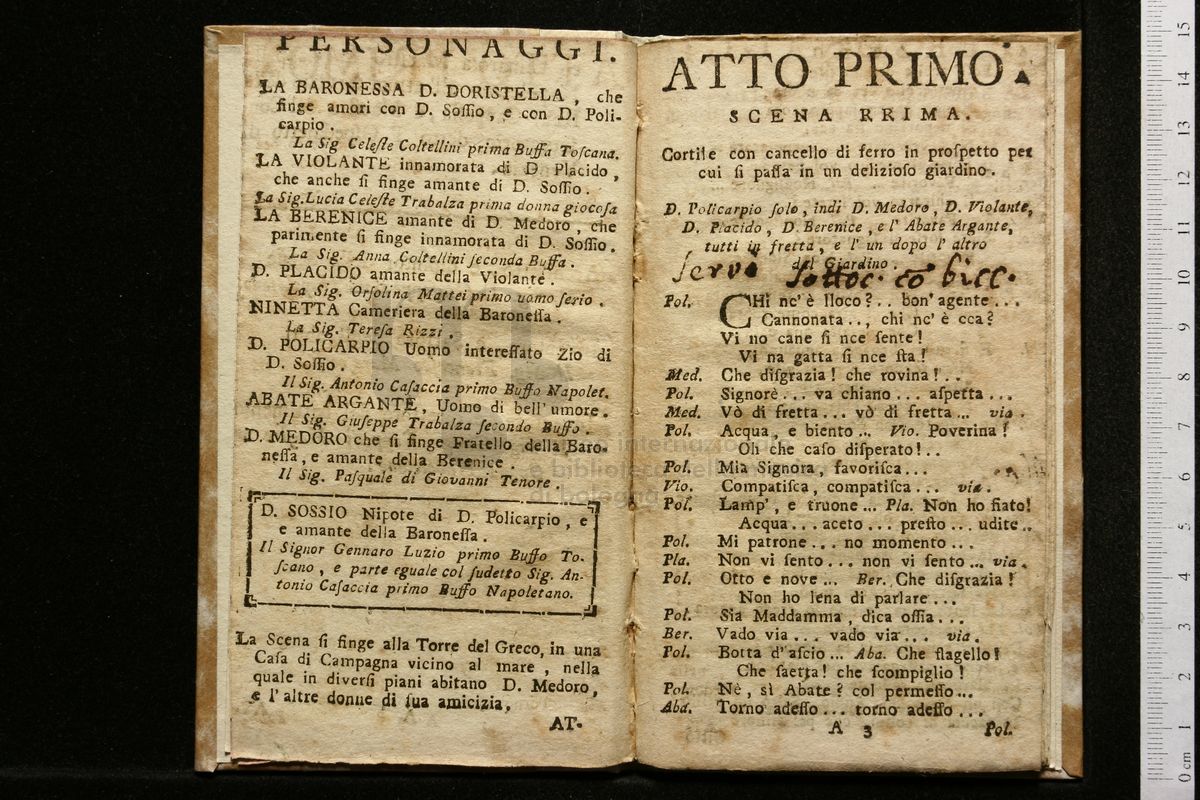 PERSONAGGI.
LA BARONESSA D. DORISTELLA, che
finge amori con D. Soſſio, e con D. Poli-
carpio.
La Sig Celeſte Coltellini prima Buffa Toſcana.
LA VIOLANTE innamorata di D Placido,
che anche ſi finge amante di D. Soſſio.
La Sig. Lucia Celeſte Trabalza prima donna giocoſa
LA BERENICE amante di D. Medoro, che
parimente ſi finge innamorata di D. Soſſio.
La Sig. Anna Coltellini ſeconda Buffa.
D. PLACIDO amante della Violante.
La Sig. Orſolina Mattei primo uomo ſerio.
NINETTA Cameriera della Baroneſſa.
La Sig. Tereſa Rizzi.
D. POLICARPIO Uomo intereſſato Zio di
D. Soſſio.
Il Sig. Antonio Caſaccia primo Buffo Napolet.
ABATE ARGANTE, Uomo di bell' umore.
Il Sig. Giuſeppe Trabalza ſecondo Buffo.
D. MEDORO che ſi finge Fratello della Baro-
neſſa, e amante della Berenice.
Il Sig. Paſquale di Giovanni Tenore.
D. SOSSIO Nipote di D. Policarpio, e
e amante della Baroneſſa.
Il Signor Gennaro Luzio primo Buffo To-
ſcano, e parte eguale col ſudetto Sig. An-
tonio Caſaccia primo Buffo Napoletano.
La Scena ſi finge alla Torre del Greco, in una
Caſa di Campagna vicino al mare, nella
quale in diverſi piani abitano D. Medoro,
e l' altre donne di ſua amicizia.
AT-
ATTO PRIMO.
SCENA RRIMA.
Cortile con cancello di ferro in proſpetto per
cui ſi paſſa in un delizioſo giardino.
D. Policarpio ſolo, indi D. Medoro, D. Violante,
D. Placido, D. Berenice, e l' Abate Argante,
tutti in fretta, e l' un dopo l' altro
dal Giardino.
ſervo ſottoc. cō bicc.
Pol. CHi nc' è lloco?.. bon' agente...
Cannonata.., chi nc' è cca?
Vi no cane ſi nce ſente!
Vi na gatta ſi nce ſta!
Med. Che diſgrazia! che rovina!..
Pol. Signorè... va chiano... aſpetta...
Med. Vò di fretta... vò di fretta... via.
Pol. Acqua, e biento... Vio. Poverina!
Oh che caſo diſperato!..
Pol. Mia Signora, favoriſca...
Vio. Compatiſca, compatiſca... via.
Pol. Lamp', e truone... Pla. Non ho fiato!
Acqua... aceto... preſto... udite..
Pol. Mi patrone... no momento...
Pla. Non vi ſento... non vi ſento... via.
Pol. Otto e nove... Ber. Che diſgrazia!
Non ho lena di parlare...
Pol. Sia Maddamma, dica oſſia...
Ber. Vado via... vado via... via.
Pol. Botta d' aſcio... Aba. Che flagello!
Che ſaetta! che ſcompiglio!
Pol. Nè, sì Abate? col permeſſo...
Aba. Torno adeſſo... torno adeſſo...
A 3 Pol.
0 cm 1 2 3 4 5 6 7 8 9 10 11 12 13 14 15